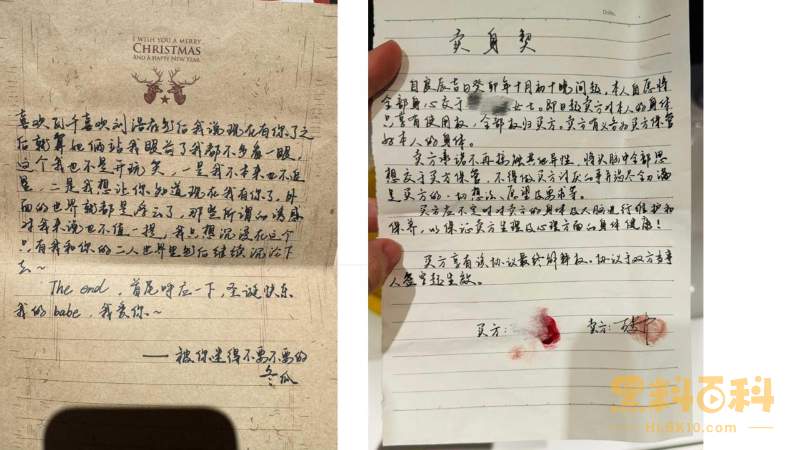 I WISH YOU A MERRY
CHRISTMAS
AND A HAPPY NEW YEAR
喜欢瓦千喜欢刘浩存包后我说现在有你了之
后就算她俩站我眼前了我都不多看一眼，
这个我也不是开玩笑，一是我不本来也不追
星，二是我想让你知道现在我有你了，外
面的世界就都是浮云了，那些所谓的诱惑
对我来说也不值一提，我只想沉浸在这个
只有我和你的二人世界里包后继续沉沦下
去~
The end，首尾呼应一下，圣诞快乐
我的babe，我爱你~
——被你迷得不要不要的
冬瓜
Date.
卖身契
自庚辰吉日癸卯年十月初十晚间起，本人自愿将
全部身心交于 女士。即日起卖方对本人的身体
只享有使用权，全部权归买方。卖方有义务为买方保管
好本人的身体。
卖方承诺不再接触其他异性，将头脑中全部思
想交于买方保管，不得做买方讨厌的事并竭尽全力满
足买方的一切想法、愿望及要求等。
买方应不定时对卖方的身体及大脑进行维护和
保养，以保证卖方生理及心理方面的身体健康！
买方享有该协议最终解释权。协议于双方当事
人签字起生效。
买方： 卖方：
黑料百科
HLBK10.com